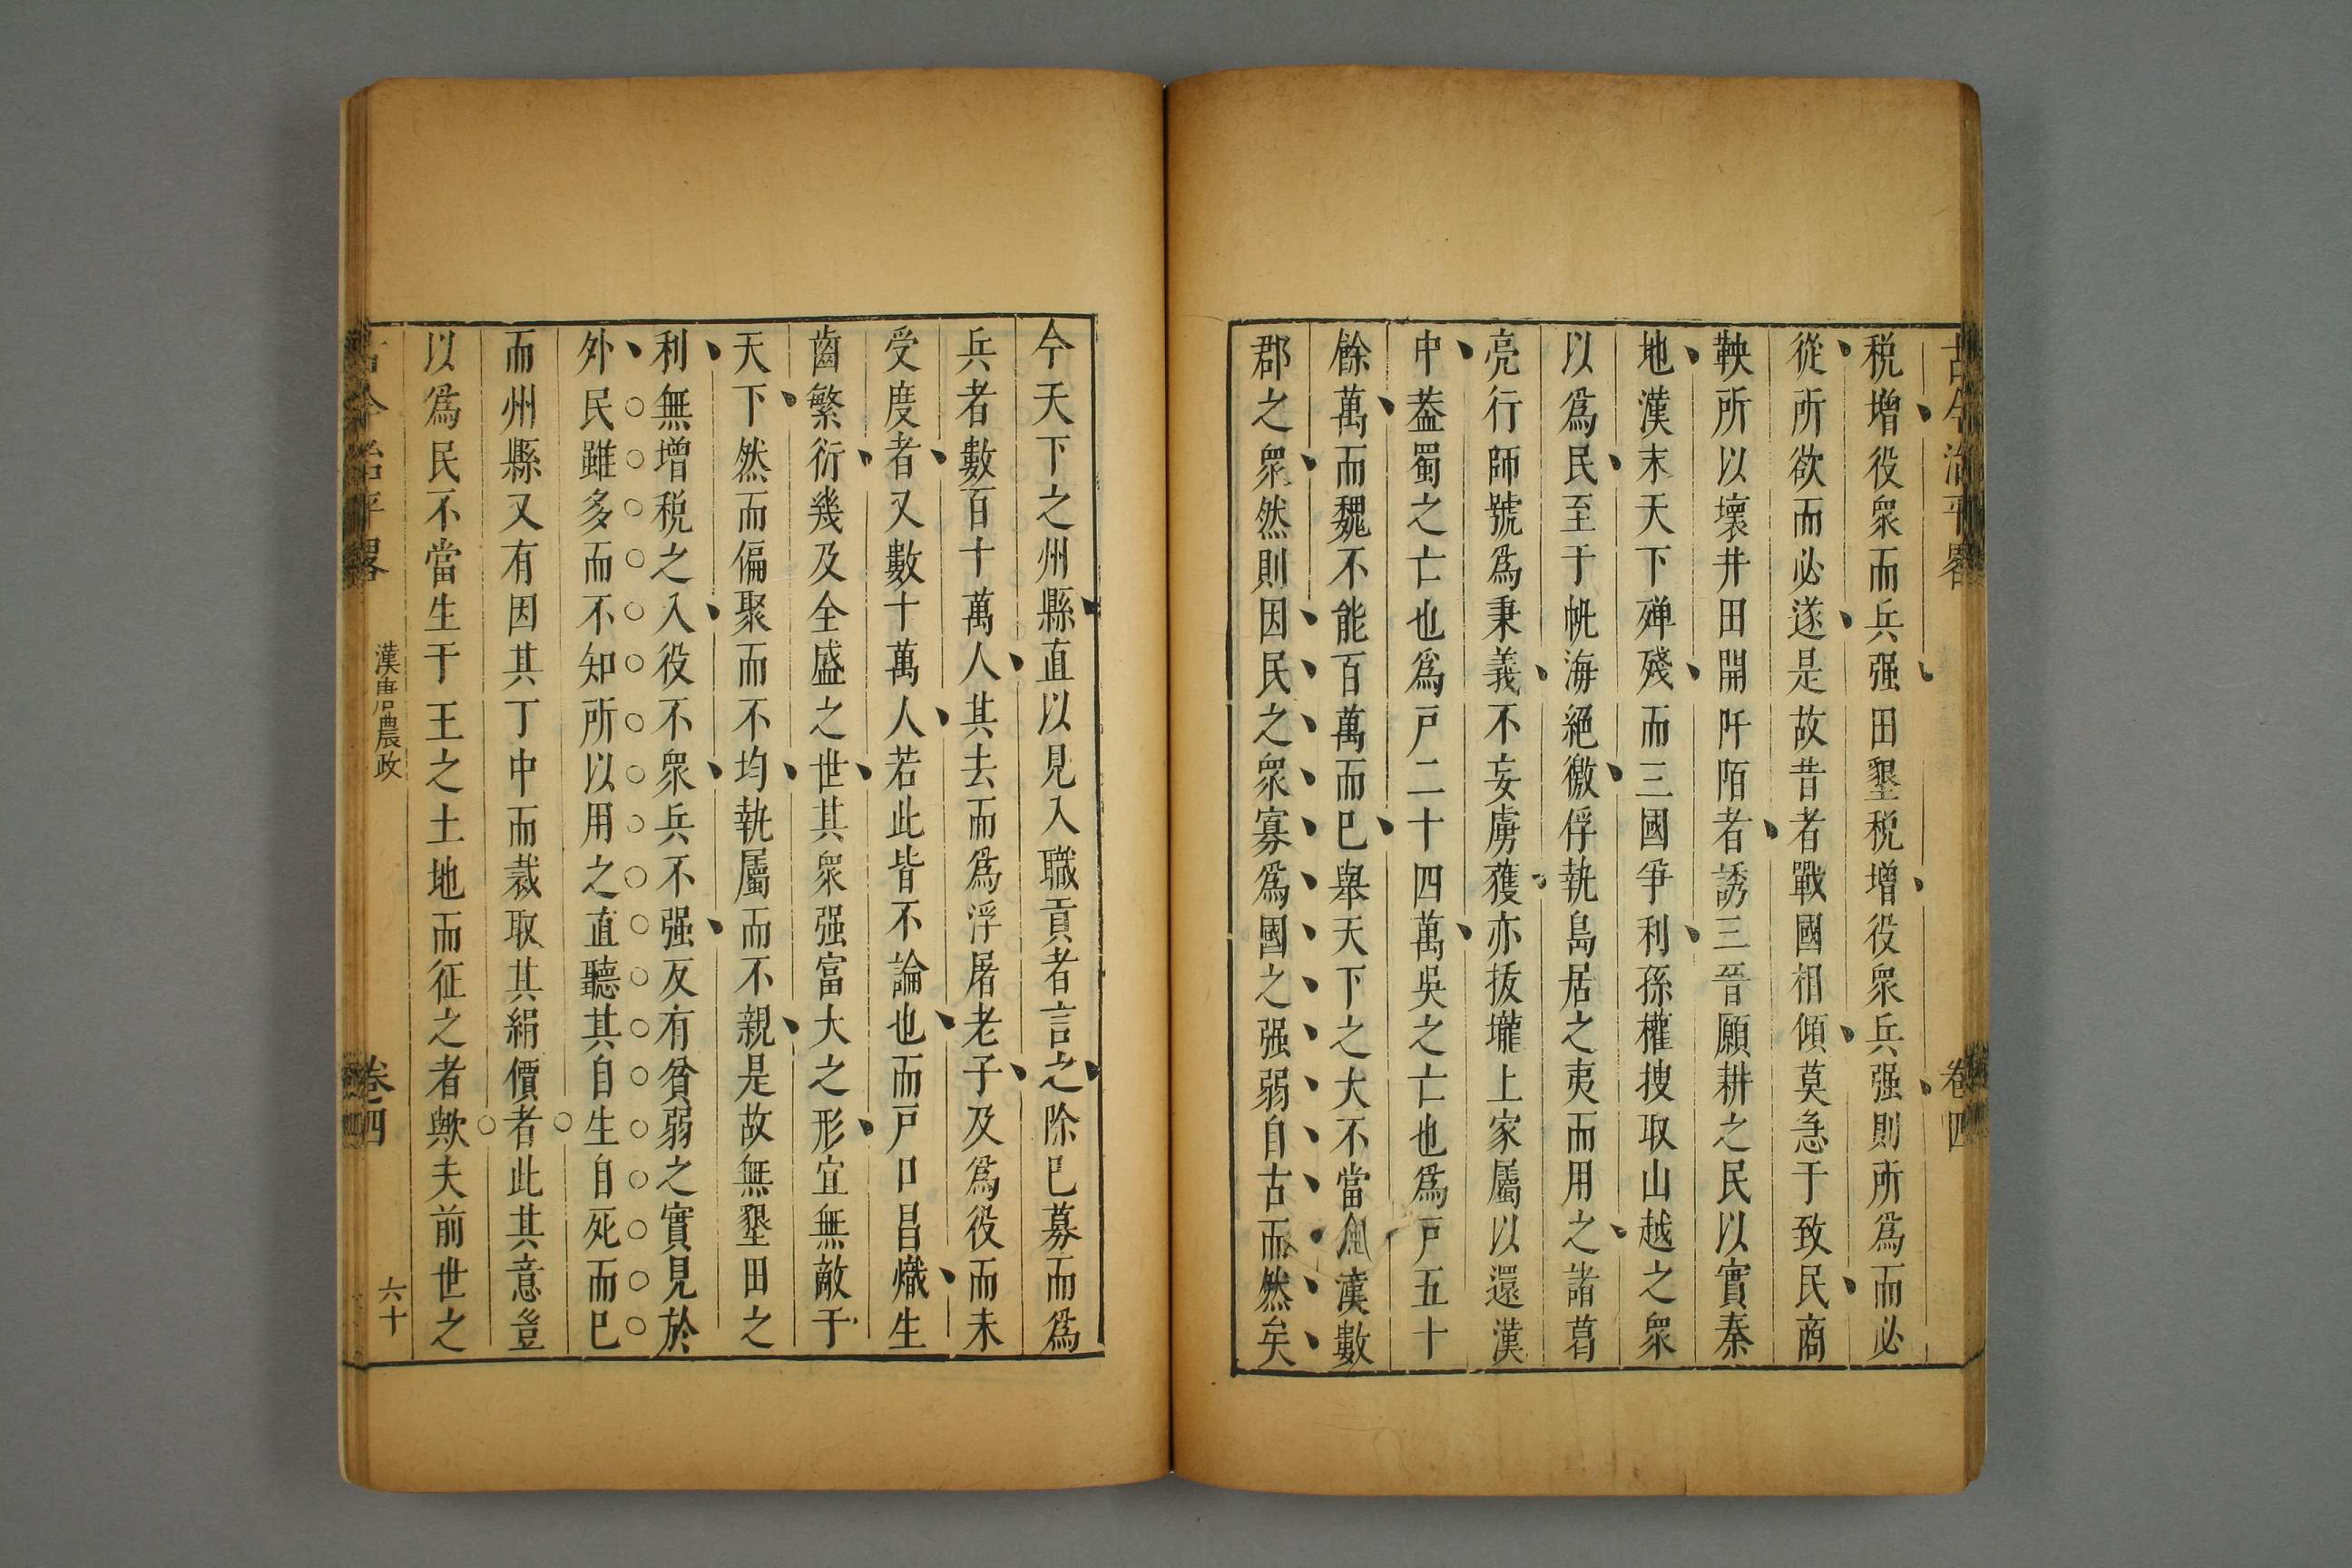 古今治平畧
卷四
税增役衆而兵强田墾税增役衆兵强則所爲而必
從所欲而必遂是故昔者戰國相傾莫急于致民商
鞅所以壞井田開阡陌者誘三晉願耕之民以實秦
地漢末天下殫殘而三國爭利孫權搜取山越之衆
以爲民至于帆海絕徼俘執島居之夷而用之諸葛
亮行師號爲秉義不妄虜獲亦拔壠上家屬以還漢
中葢蜀之亡也爲戸二十四萬吳之亡也爲戸五十
餘萬而魏不能百萬而已舉天下之大不當漢數
郡之衆然則因民之衆寡爲國之强弱自古而然矣
今天下之州縣直以見入職貢者言之除已募而爲
兵者數百十萬人其去而爲浮屠老子及爲役而未
受度者又數十萬人若此皆不論也而戸口昌熾生
齒繁衍幾及全盛之世其衆强富大之形宜無敵于
天下然而偏聚而不均執屬而不親是故無墾田之
利無增税之入役不衆兵不强反有貧弱之實見於
外民雖多而不知所以用之直聽其自生自死而已
而州縣又有因其丁中而裁取其絹價者此其意豈
以爲民不當生于王之土地而征之者歟夫前世之
古今治平畧
漢唐農政
卷四
六十